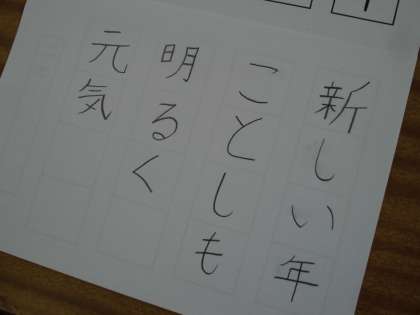 新しい年
ことしも
明るく
元気